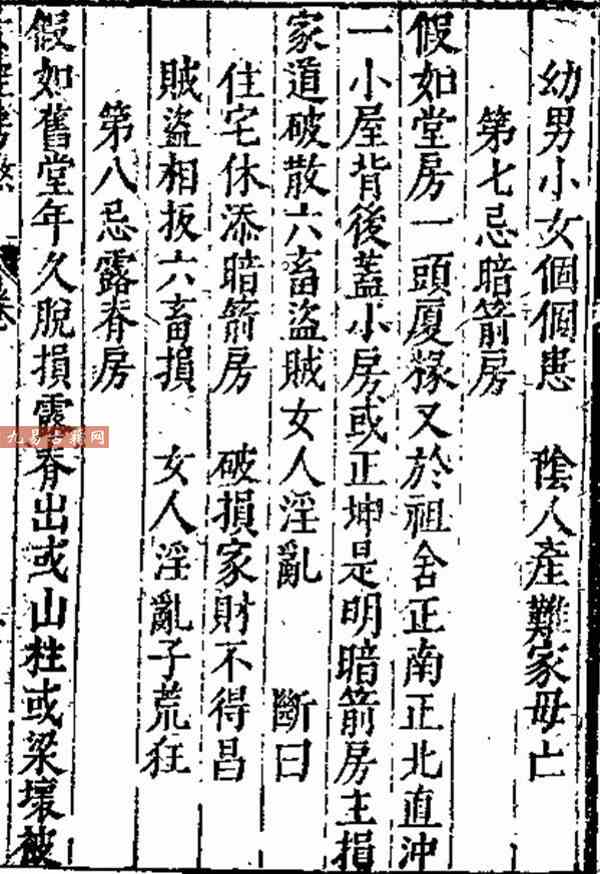 幼男小女個個患　陰人產難家母亡
第七忌暗箭房
假如堂房一頭廈椽又於祖舍正南正北直沖
一小屋背後蓋小房或正坤是明暗箭房主損
家道破散六畜盜賊女人淫亂　斷曰
住宅休添暗箭房　破損家財不得昌
賊盜相扳六畜損　女人淫亂子荒狂
第八忌露脊房
假如舊堂年久脫損露脊出或山柱或梁壞被
九易古籍网